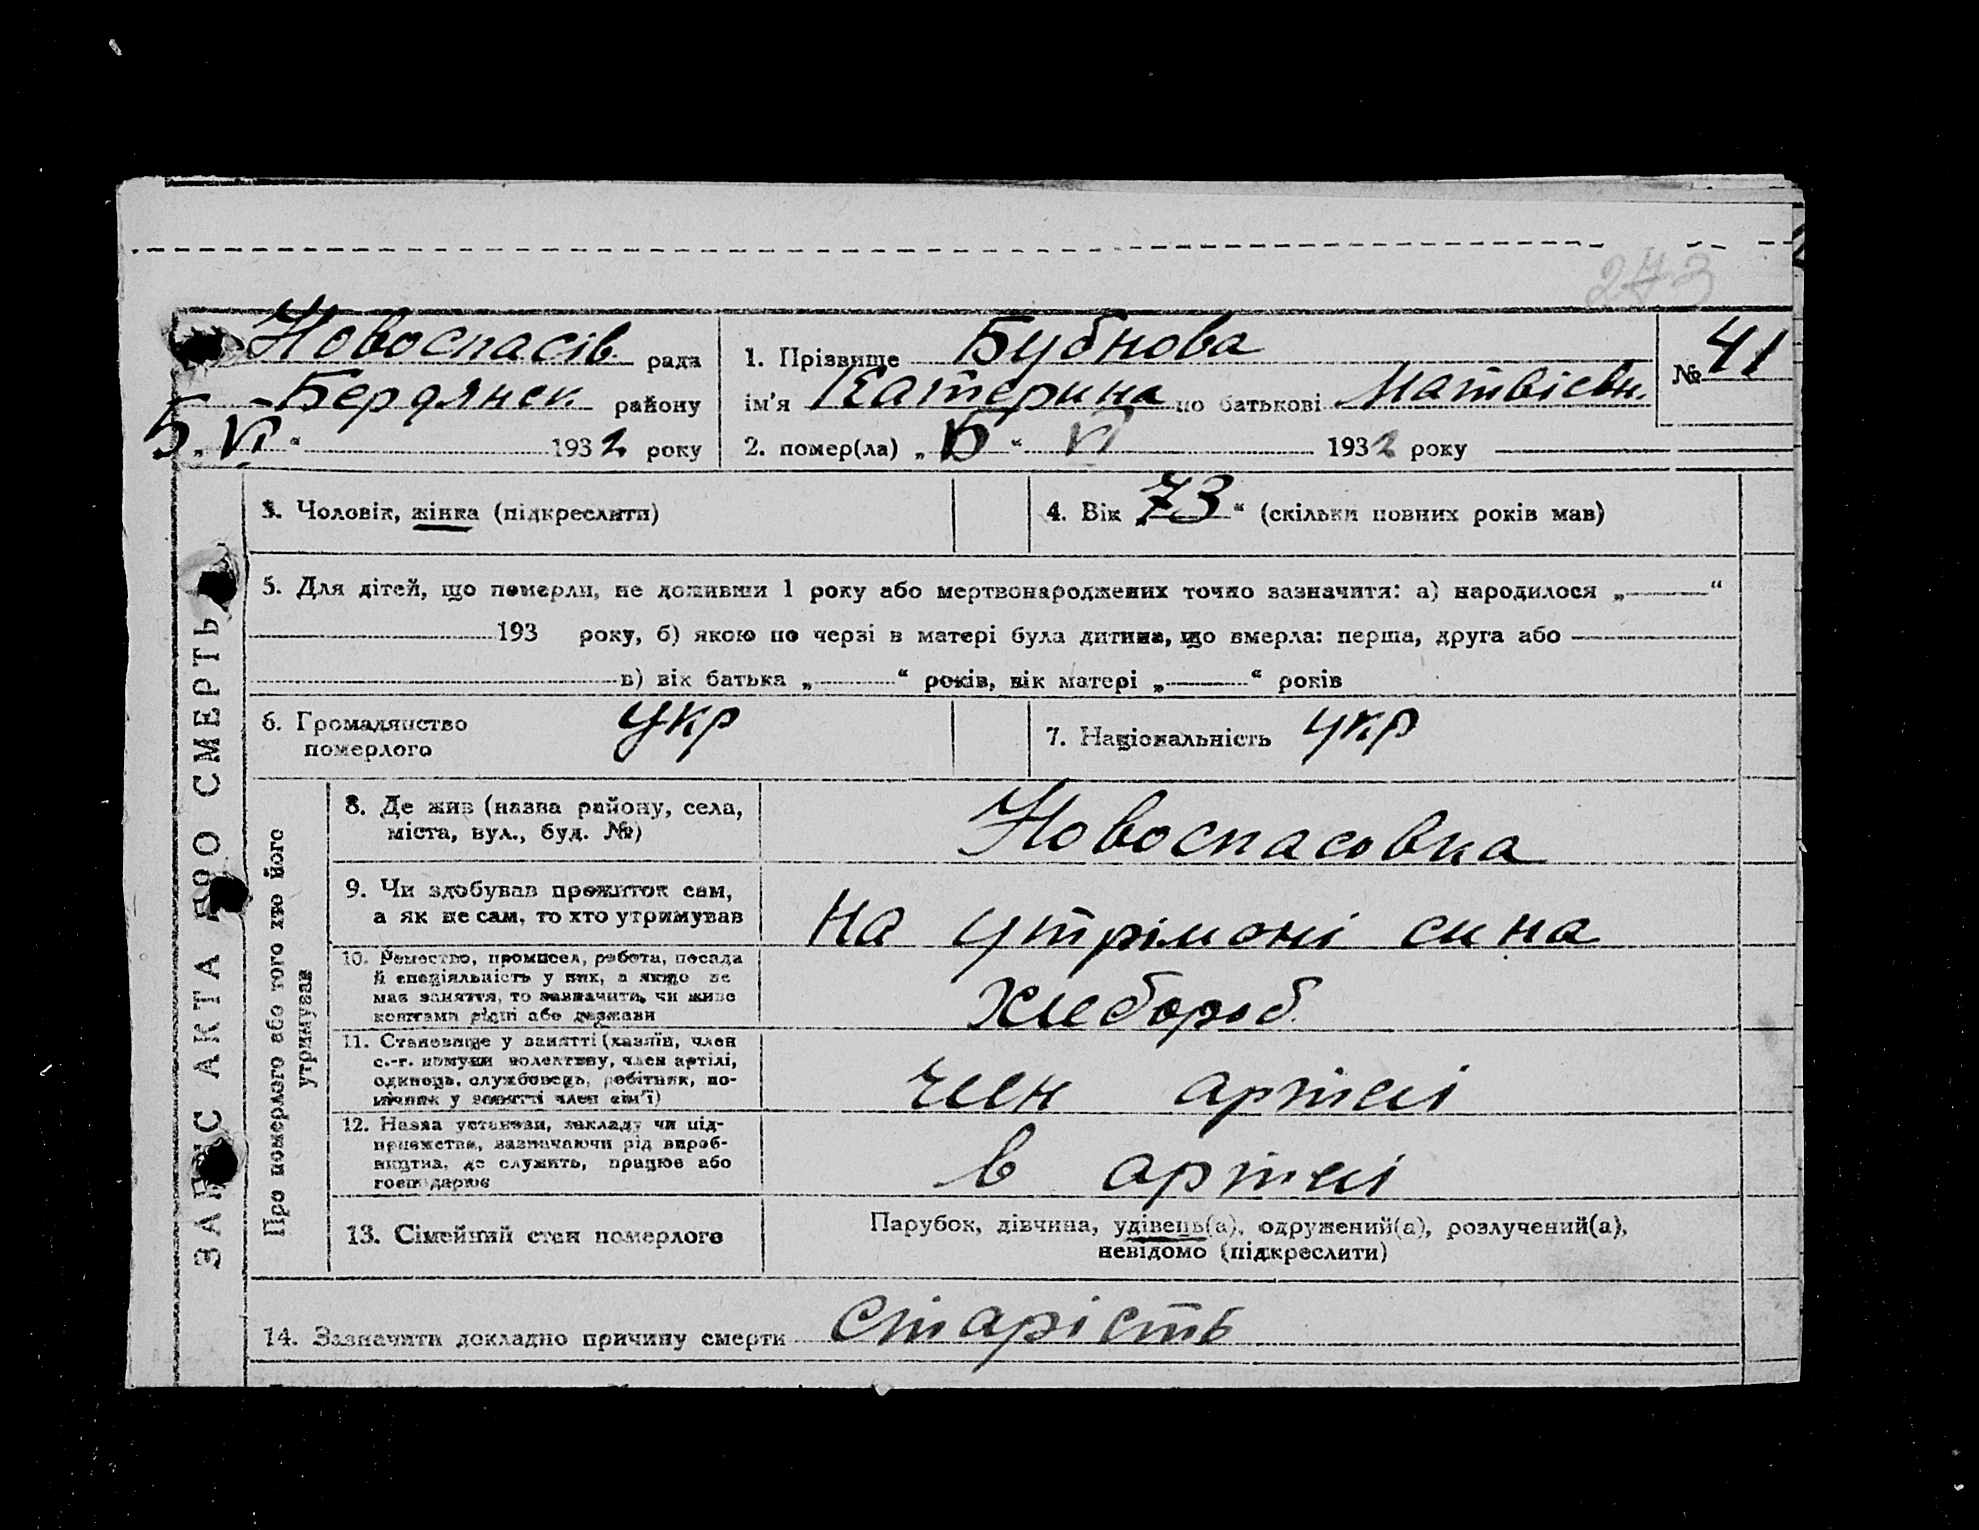 273
Новоспасів рада
Бердянск району
5 „ VI “ 1932 року
1. Прізвище Бубнова
ім'я Катерина по батькові Матвієвн.
2. помер(ла) „ 5 “ VI 1932 року
№ 41
ЗАПИС АКТА ПРО СМЕРТЬ
3. Чоловік, жінка (підкреслити)
4. Вік „ 73 “ (скільки повних років мав)
5. Для дітей, що померли, не доживши 1 року або мертвонароджених точно зазначити: а) народилося „ “
193 року, б) якою по черзі в матері була дитина, що вмерла: перша, друга або
в) вік батька „ “ років, вік матері „ “ років
6. Громадянство
померлого
укр
7. Національність укр
Про померлого або того хто його
утримував
8. Де жив (назва району, села,
міста, вул., буд. №)
Новоспасовка
9. Чи здобував прожиток сам,
а як не сам, то хто утримував
на утрімані сина
10. Ремество, промисел, робота, посада
й спеціяльність у них, а якщо не
має заняття, то зазначити, чи живе
коштами рідні або держави
Хлебороб
11. Становище у занятті (хазяїн, член
с.-г. комуни колективу, член артілі,
одинець, службовець, робітник, по-
мічник у занятті член сім'ї)
член артелі
12. Назва установи, закладу чи під-
приємства, зазначаючи рід вироб-
ництва, де служить, працює або
господарює
в артелі
13. Сімейний стан померлого
Парубок, дівчина, удівець(а), одружений(а), розлучений(а),
невідомо (підкреслити)
14. Зазначити докладно причину смерти старість